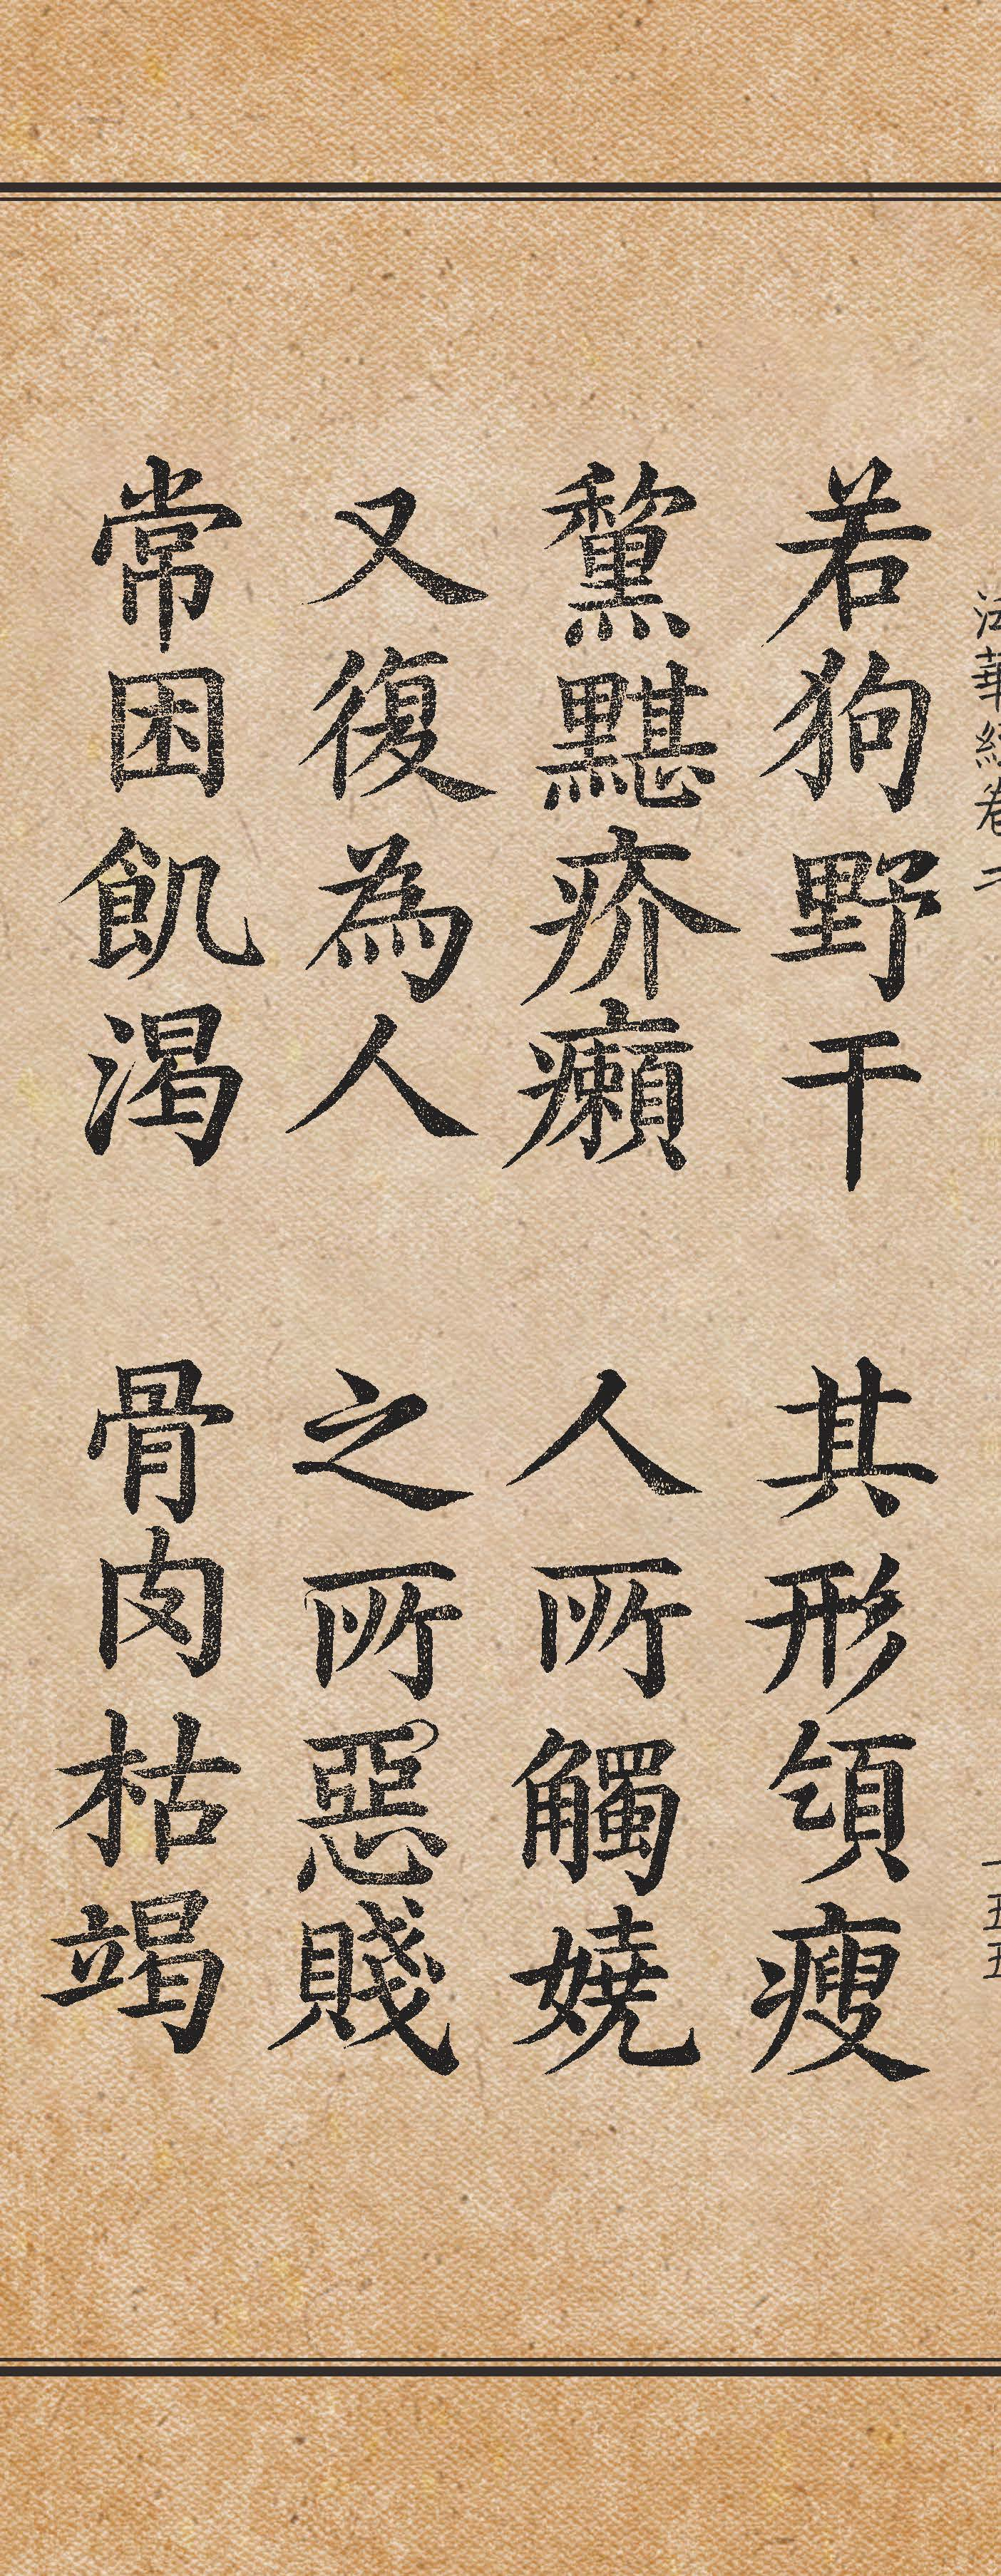 法華經卷二 一五五
若狗野干 其形𩑔瘦
黧黮疥癩 人所觸嬈
又復為人 之所惡賤
常困飢渴 骨肉枯竭